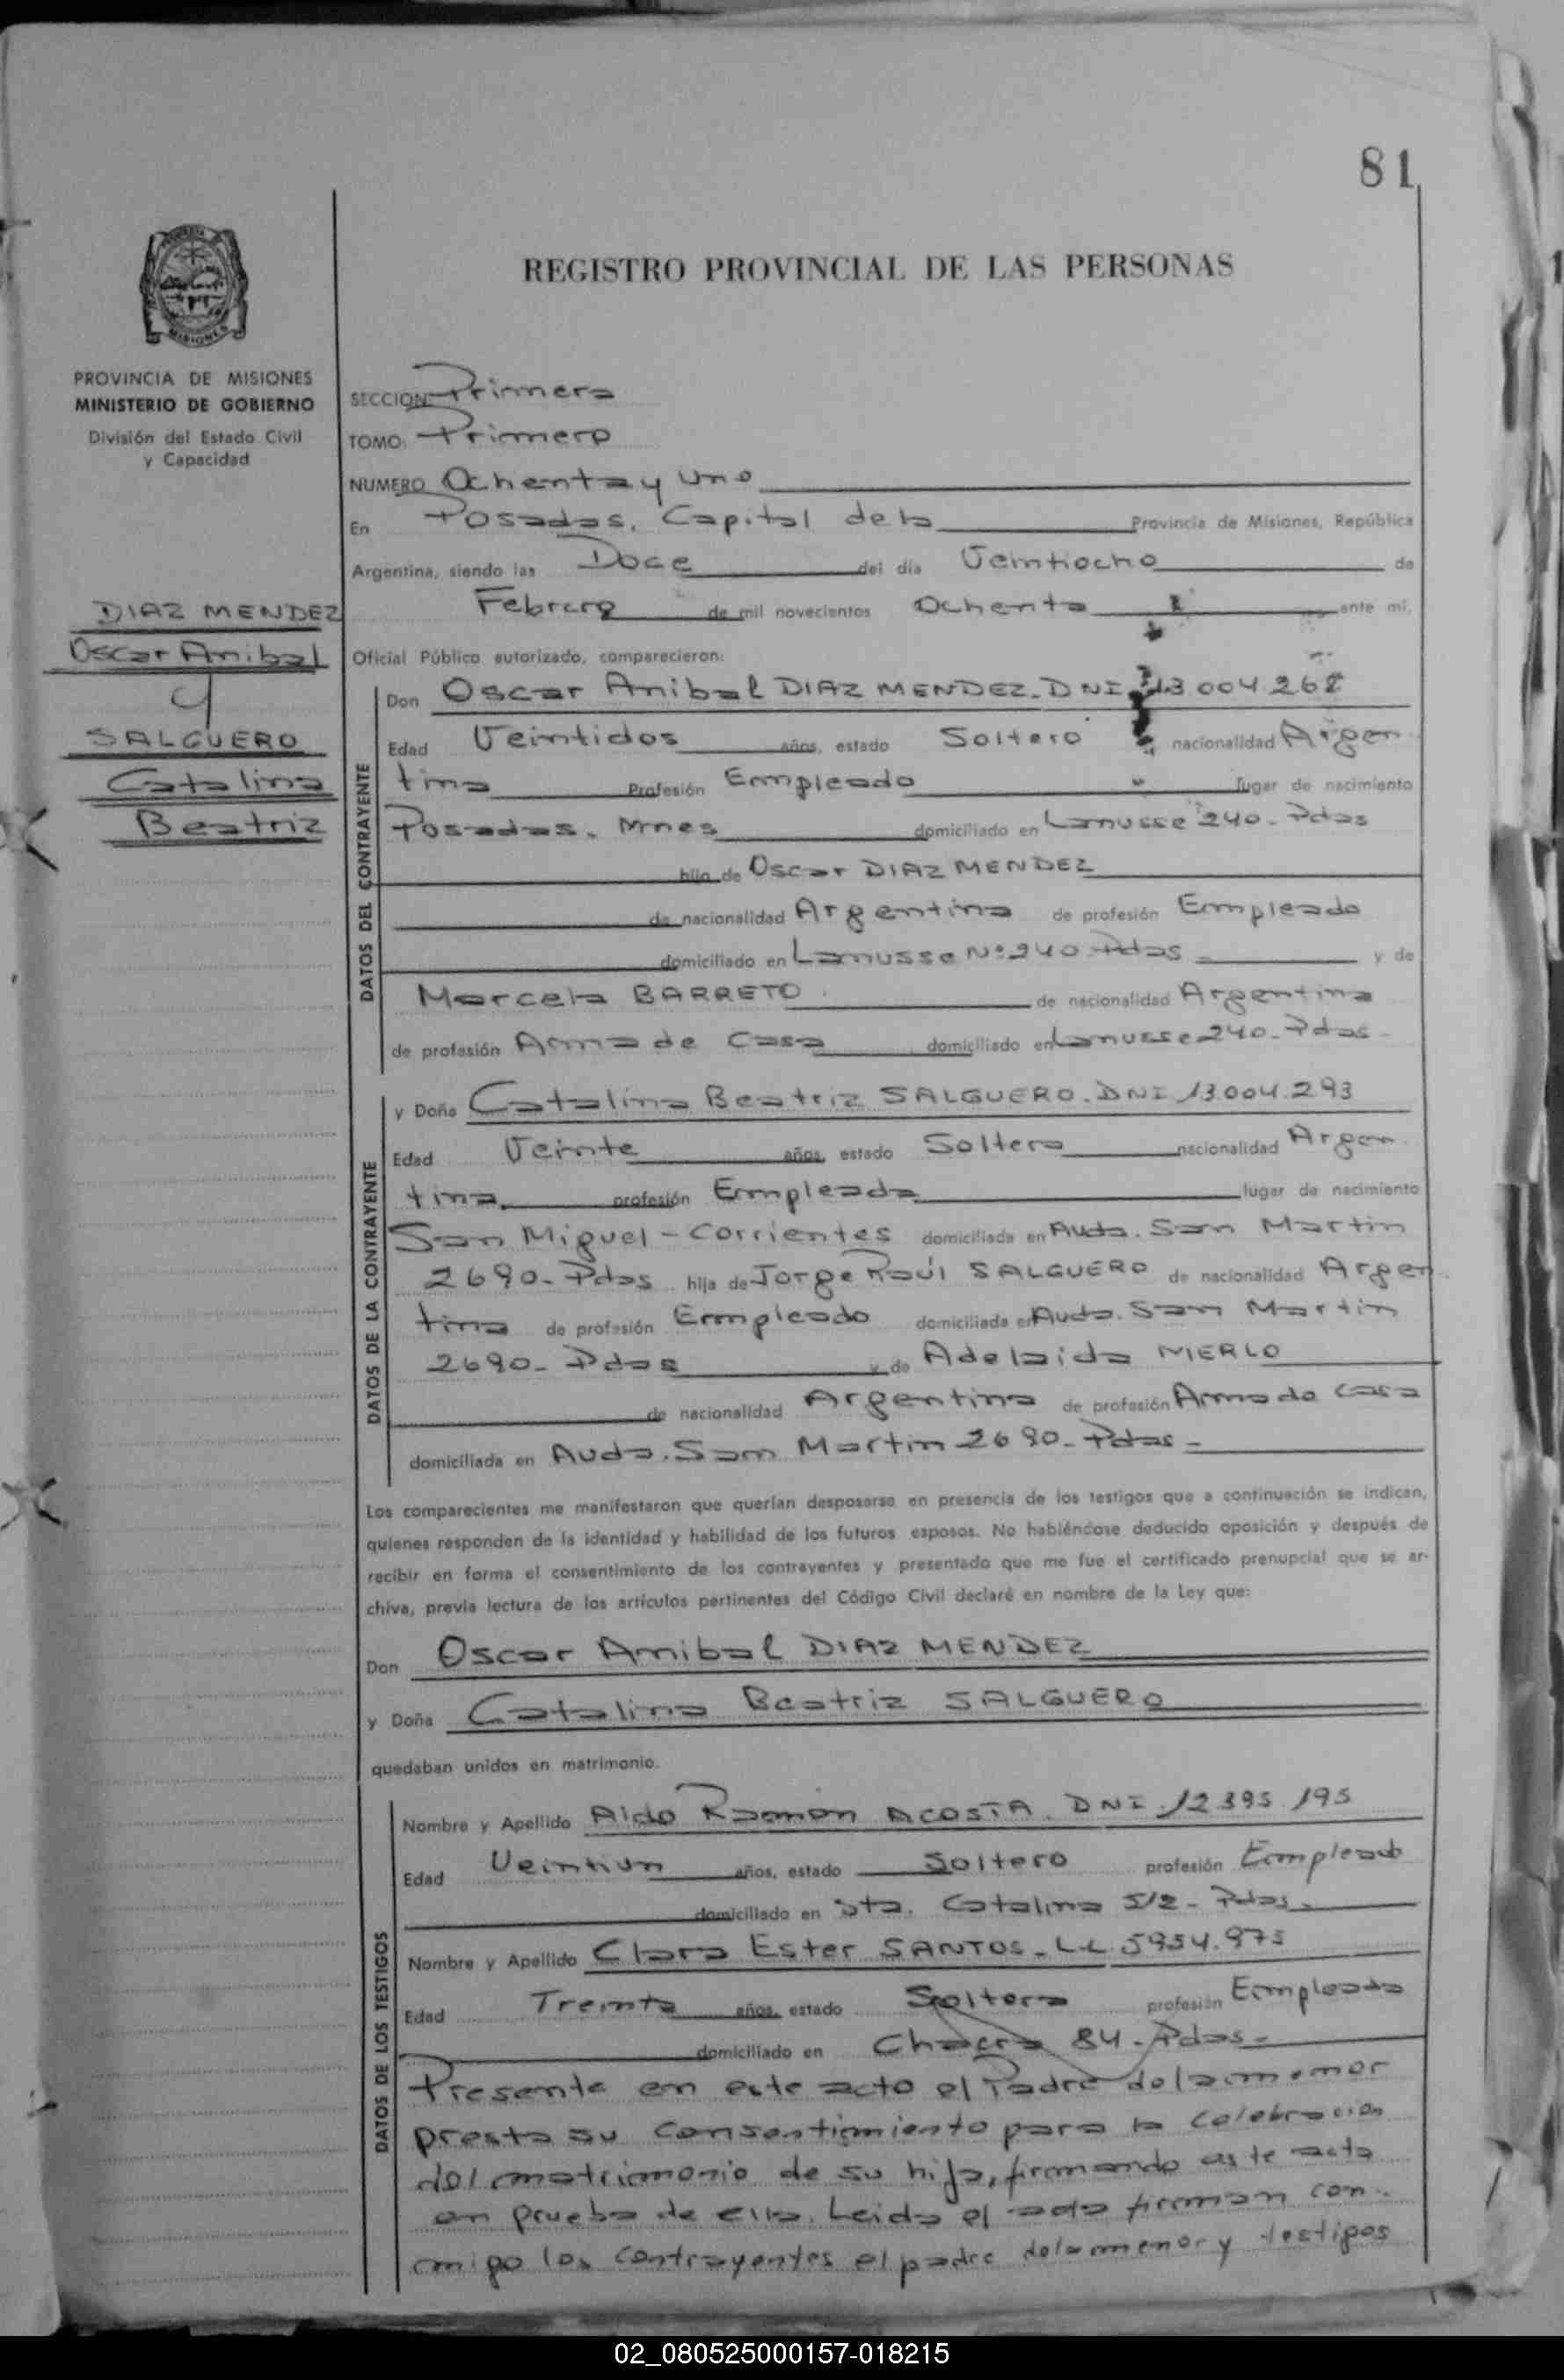 81
REGISTRO PROVINCIAL DE LAS PERSONAS
MISIONES
PROVINCIA DE MISIONES
MINISTERIO DE GOBIERNO
División del Estado Civil
y Capacidad
DIAZ MENDEZ
Oscar Anibal
y
SALGUERO
Catalina
Beatriz
SECCION: Primera
TOMO: Primero
NUMERO Ochenta y uno
En Posadas, Capital de la Provincia de Misiones, República
Argentina, siendo las Doce del día Veintiocho de
Febrero de mil novecientos Ochenta ante mí,
Oficial Público autorizado, comparecieron:
DATOS DEL CONTRAYENTE
Don Oscar Anibal DIAZ MENDEZ. DNI 13.004.268
Edad Veintidos años, estado Soltero nacionalidad Argen
tina Profesión Empleado lugar de nacimiento
Posadas. Mnes domiciliado en Lanusse 240. Pdas
hijo de Oscar DIAZ MENDEZ
de nacionalidad Argentina de profesión Empleado
domiciliado en Lanusse Nº 240 Pdas y de
Marcela BARRETO de nacionalidad Argentina
de profesión Ama de Casa domiciliado en Lanusse 240. Pdas-
DATOS DE LA CONTRAYENTE
y Doña Catalina Beatriz SALGUERO. DNI 13.004.293
Edad Veinte años, estado Soltera nacionalidad Argen
tina profesión Empleada lugar de nacimiento
San Miguel - Corrientes domiciliada en Avda. San Martin
2690- Pdas hija de Jorge Raúl SALGUERO de nacionalidad Argen
tina de profesión Empleado domiciliada en Avda. San Martin
2690- Pdas y de Adelaida MERLO
de nacionalidad Argentina de profesión Ama de casa
domiciliada en Avda. San Martin 2690- Pdas-
Los comparecientes me manifestaron que querían desposarse en presencia de los testigos que a continuación se indican,
quienes responden de la identidad y habilidad de los futuros esposos. No habiéndose deducido oposición y después de
recibir en forma el consentimiento de los contrayentes y presentado que me fue el certificado prenupcial que se ar-
chiva, previa lectura de los artículos pertinentes del Código Civil declaré en nombre de la Ley que:
Don Oscar Anibal DIAZ MENDEZ
y Doña Catalina Beatriz SALGUERO
quedaban unidos en matrimonio.
DATOS DE LOS TESTIGOS
Nombre y Apellido Aldo Ramón ACOSTA. DNI 12.395.195
Edad Veintiun años, estado Soltero profesión Empleado
domiciliado en Sta. Catalina 512- Pdas.
Nombre y Apellido Clara Ester SANTOS- L.C. 5954.975
Edad Treinta años, estado Soltera profesión Empleada
domiciliado en Chacra 84- Pdas-
Presente en este acto el Padre de la menor
presta su consentimiento para la celebracion
del matrimonio de su hija, firmando este acta
en prueba de ello. Leida el acta firman con-
migo los contrayentes el padre de la menor y testigos
02_080525000157-018215